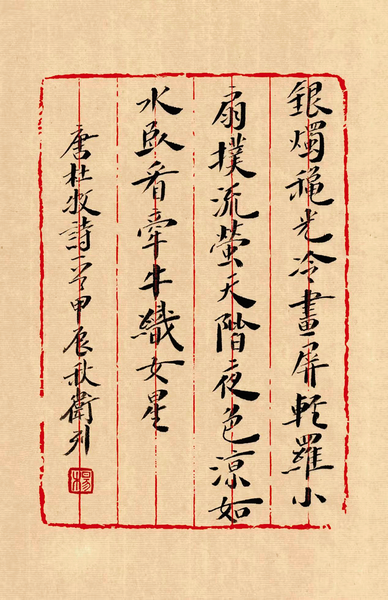 銀燭穐光冷畫屏輕羅小
扇撲流螢天階夜色涼如
水臥看牽牛織女星
唐杜牧詩一首甲辰秋衛列